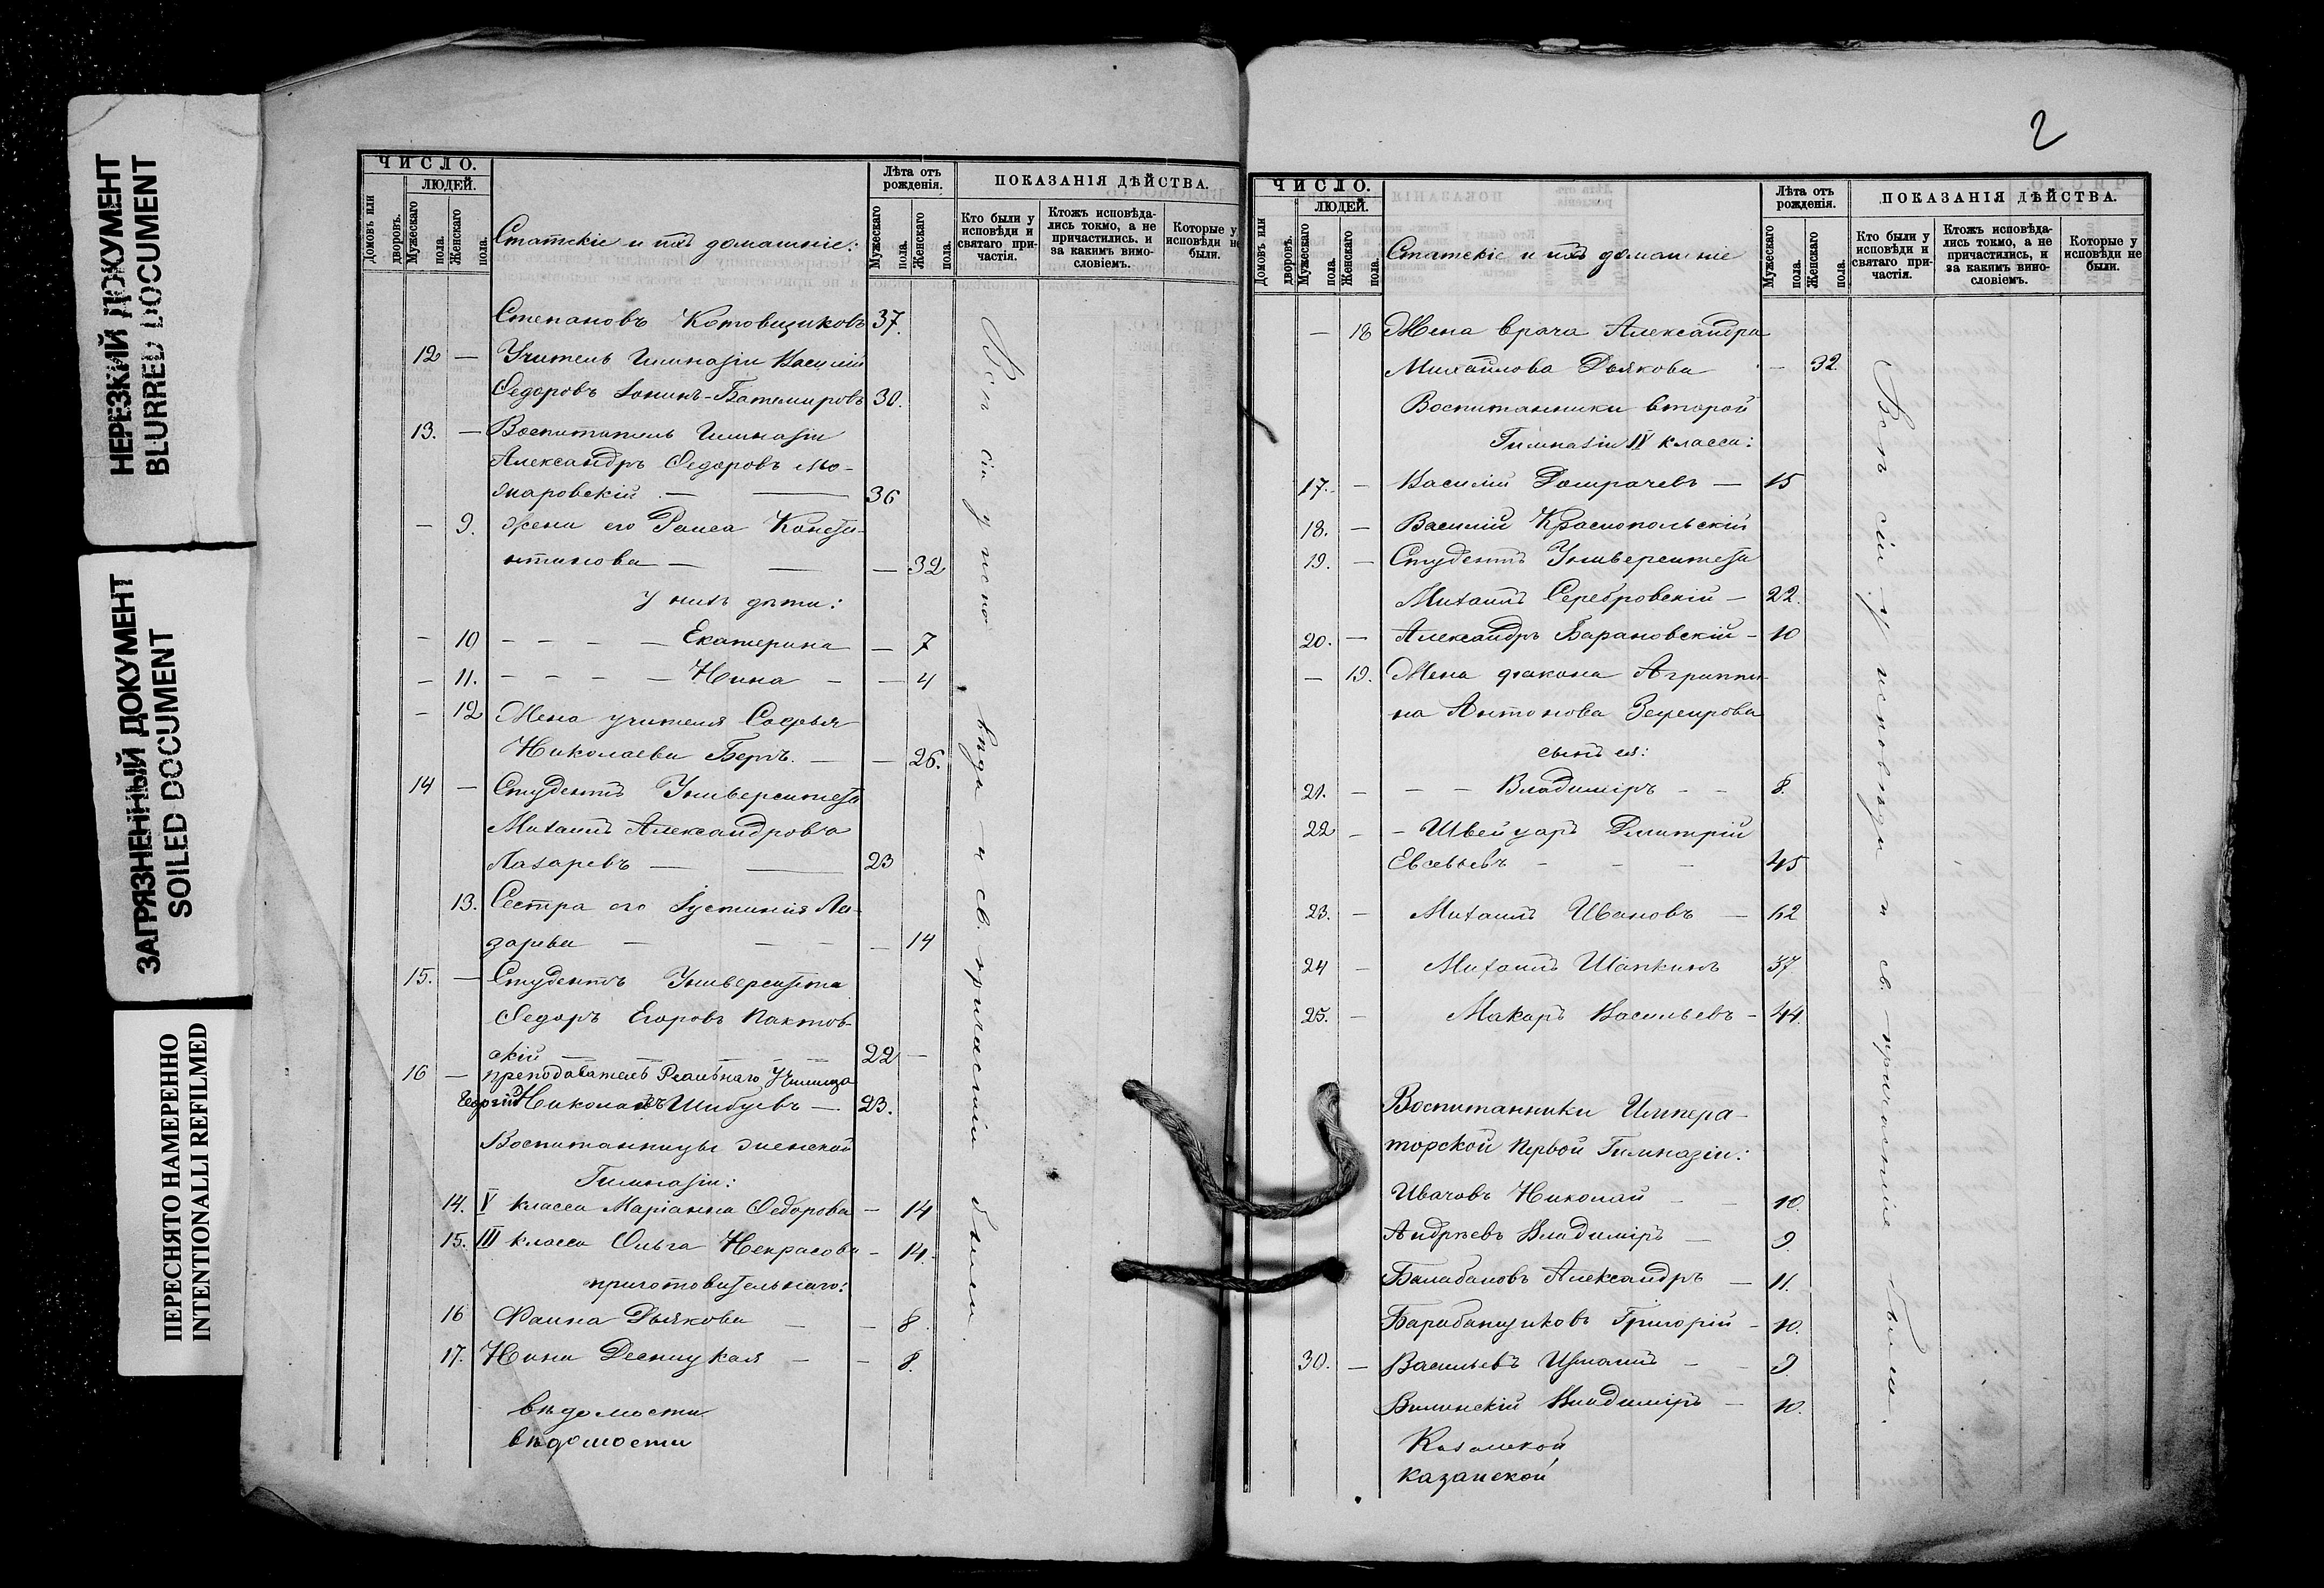 НЕРЕЗКИЙ ДОКУМЕНТ
BLURRED DOCUMENT
ЗАГРЯЗНЕННЫЙ ДОКУМЕНТ
SOILED DOCUMENT
ПЕРЕСНЯТО НАМЕРЕННО
INTENTIONALLI REFILMED
ЧИСЛО.
ЛЮДЕЙ.
Домовъ или дворовъ.
Мужескаго пола.
Женскаго пола.
Статскіе и ихъ домашніе:
Лѣта отъ рожденія.
Мужескаго пола.
Женскаго пола.
ПОКАЗАНІЯ ДѢЙСТВА.
Кто были у исповѣди и святаго причастія.
Ктожъ исповѣдались токмо, а не причастились, и за какимъ винословіемъ.
Которые у исповѣди не были.
Степановъ Котовщиковъ 37.
12 — Учитель Гимназіи Василій
Ѳедоровъ Іонинъ-Батемировъ 30.
13. — Воспитатель Гимназіи
Александръ Ѳедоровъ
жаровскій — — 36
— 9. жена его Раиса Конста-
нтинова — — — 32
у нихъ дѣти:
— 10 — — — — Екатерина — 7
— 11. — — — — Нина — — 4
— 12 Жена учителя Софья
Николаева Бергъ. — — 26.
14 — Студентъ Университета
Михаилъ Александровъ
Лазаревъ — — 23
13. Сестра его Іустинія Ла-
зарева — — — — 14
15. — Студентъ Университета
Ѳедоръ Егоровъ Пактов-
скій — — — 22 —
16 — преподаватель Реальнаго Училища
Георгій Николаевъ Шибуевъ — 23.
Воспитанницы женской
Гимназіи:
14. V класса Маріанна Ѳедорова — 14
15. III класса Ольга Некрасова — 14.
приготовительнаго:
16 Фаина Дьякова — — 8.
17. Нина Десницкая — — 8.
вѣдомости
вѣдомости
Всѣ сіи у исповѣди и св. причастія были.
2
ЧИСЛО.
ЛЮДЕЙ.
Домовъ или дворовъ.
Мужескаго пола.
Женскаго пола.
Статскіе и ихъ домашніе
Лѣта отъ рожденія.
Мужескаго пола.
Женскаго пола.
ПОКАЗАНІЯ ДѢЙСТВА.
Кто были у исповѣди и святаго причастія.
Ктожъ исповѣдались токмо, а не причастились, и за какимъ винословіемъ.
Которые у исповѣди не были.
— 18 Жена врача Александра
Михайлова Дьякова — 32.
Воспитанники второй
Гимназіи IV класса:
17. — Василій Домрачевъ — 15
18. — Василій Краснопольскій
19. — Студентъ Университета
Михаилъ Серебровскій — 22.
20. — Александръ Барановскій — 10
— 19. Жена діакона Агриппи-
на Антонова Зефирова
сынъ ея:
21. — — — Владиміръ — — 8.
22 — — Швейцаръ Дмитрій
Евсевьевъ — — — 45
23. — Михаилъ Ивановъ — 62
24 — Михаилъ Шапкинъ 37
25. — Макаръ Васильевъ — 44.
Воспитанники Импера-
торской Первой Гимназіи:
Ивачовъ Николай — — 10.
Андреевъ Владиміръ — 9.
Балабановъ Александръ — 11.
Барабанщиковъ Григорій — 10.
30. — Васильевъ Измаилъ — — 9.
Вилинскій Владиміръ — 10.
Казанской
казанской
Всѣ сіи у исповѣди и св. причастіе были.